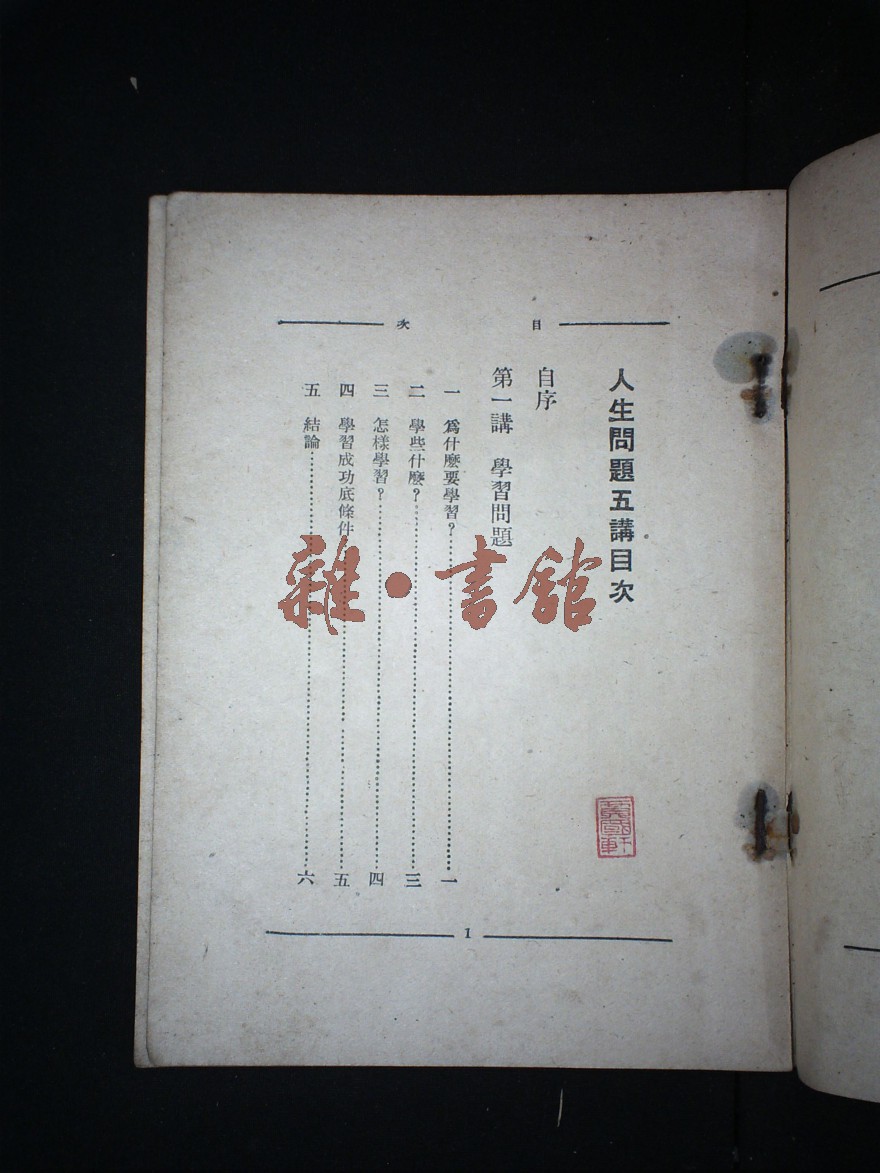 目次
人生問題五講目次
自序
第一講　學習問題
一　爲什麽要學習？……一
二　學些什麽？……三
三　怎樣學習？……四
四　學習成功底條件……五
五　結論……六
1
雜·書館